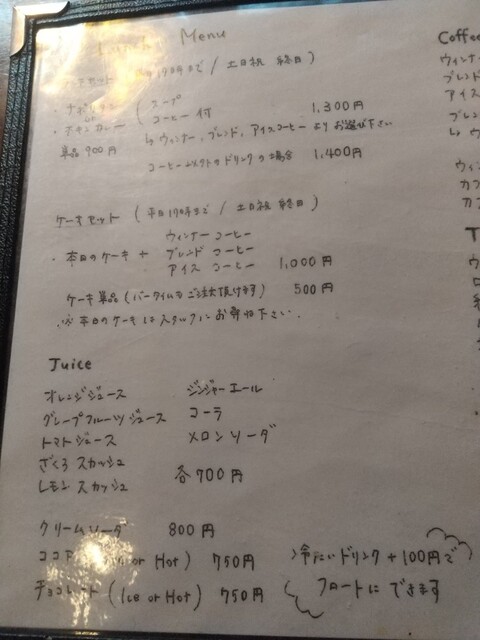 Menu
セット (平日17時まで / 土日祝 終日)
・ナポリタン (スープ
・チキンカレー コーヒー 付 1,300円
↳ ウィンナー、ブレンド、アイスコーヒー よりお選び下さい
単品 900円
コーヒー以外のドリンクの場合 1,400円
ケーキセット (平日17時まで / 土日祝 終日)
ウィンナーコーヒー
・本日のケーキ + ブレンド コーヒー
アイス コーヒー 1,000円
ケーキ単品 (バータイムもご注文頂けます) 500円
※本日のケーキはスタッフにお尋ね下さい.
Juice
オレンジジュース ジンジャーエール
グレープフルーツジュース コーラ
トマトジュース メロンソーダ
ざくろ スカッシュ
レモン スカッシュ 各700円
クリームソーダ 800円
ココア or Hot) 750円
チョコレート (Ice or Hot) 750円
冷たいドリンク +100円で
フロートにできます
Coffee
ウィンナ
ブレン
アイス
ブレン
↳ ウ
ウィン
カフ
カフ
T